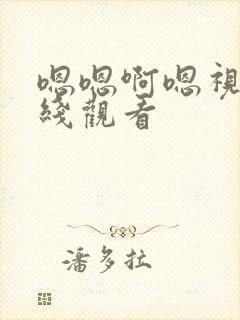 嗯嗯啊嗯視
綫觀看
潘多拉